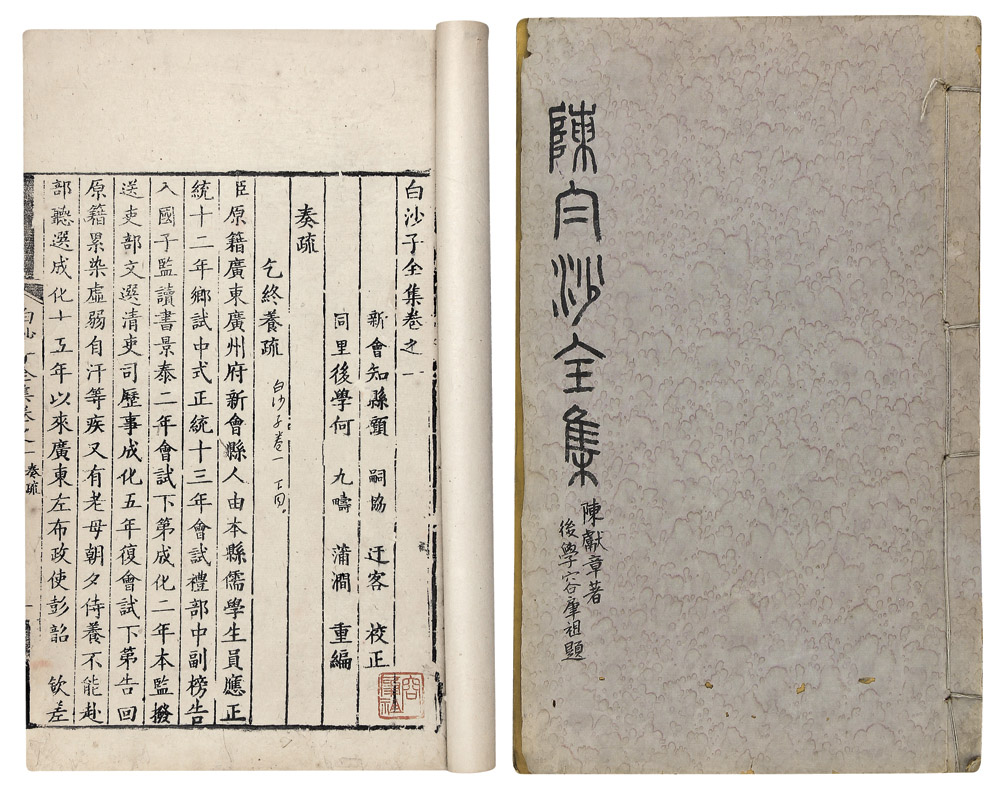 白沙子全集卷之一
新會知縣顧 嗣協 迂客 校正
同里後學何 九疇 蒲澗 重編
奏疏
乞終養疏
白沙子卷一
臣原籍廣東廣州府新會縣人由本縣儒學生員應正
統十二年鄉試中式正統十三年會試禮部中副榜告
入國子監讀書景泰二年會試下第成化二年本監撥
送吏部文選清吏司歷事成化五年復會試下第告回
原籍累染虛弱自汗等疾又有老母朝夕侍養不能赴
部聽選成化十五年以來廣東左布政使彭韶 欽差
白沙子全集卷之一 奏疏
容肇祖
陳白沙全集
陳獻章著
後學容肇祖題